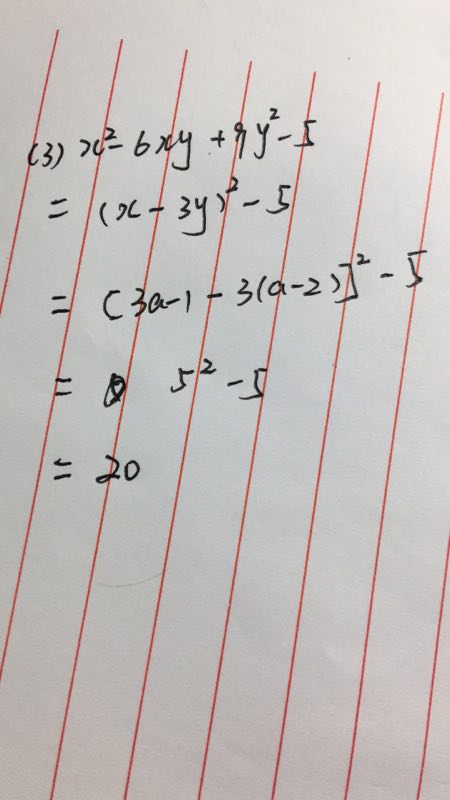 (3) x²-6xy+9y²-5
= (x-3y)²-5
= [3a-1-3(a-2)]²-5
= 5²-5
= 20